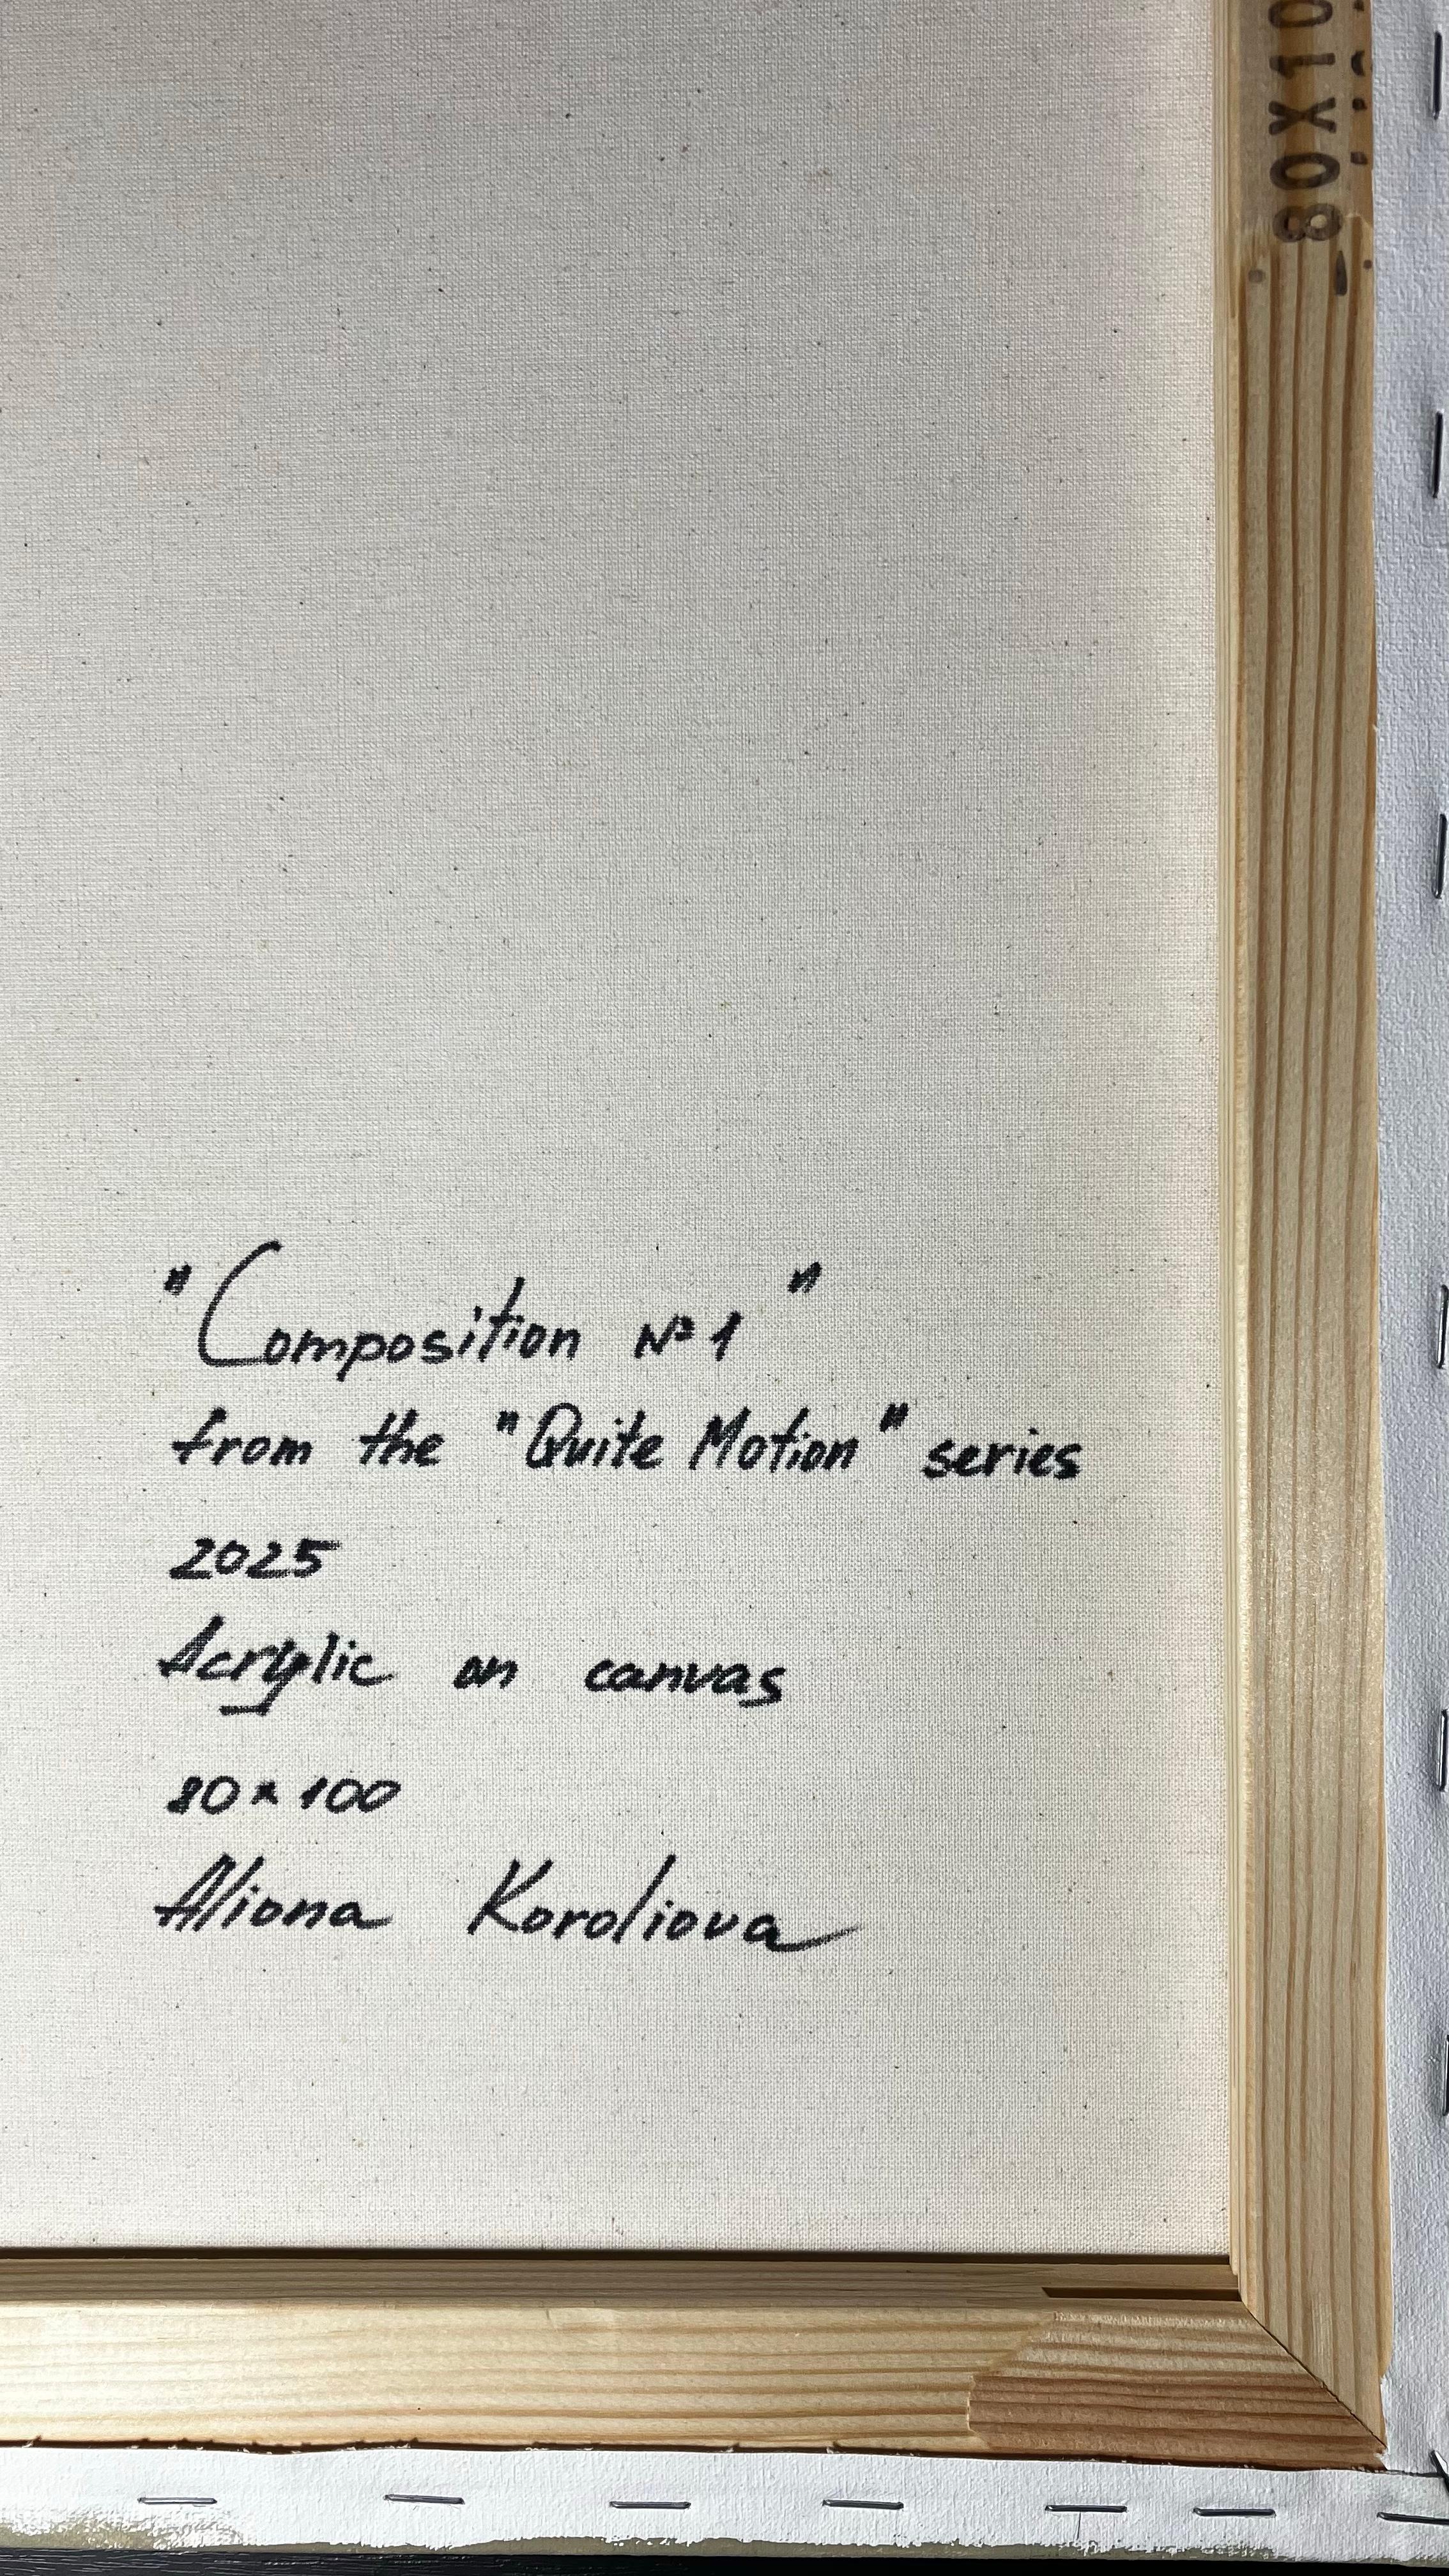 80X10
"Composition №1"
from the "Quite Motion" series
2025
Acrylic on canvas
80×100
Aliona Koroliova